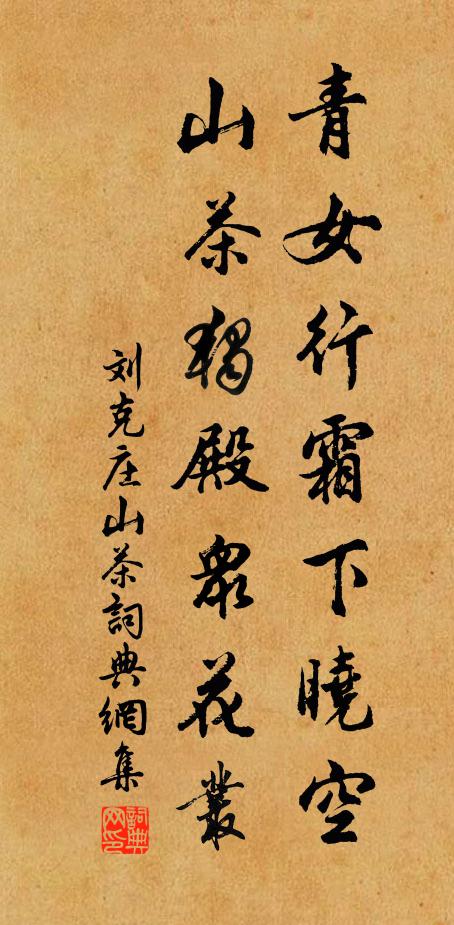 青女行霜下曉空
山茶獨殿衆花叢
刘克庄山茶詞典網集
詞典网印